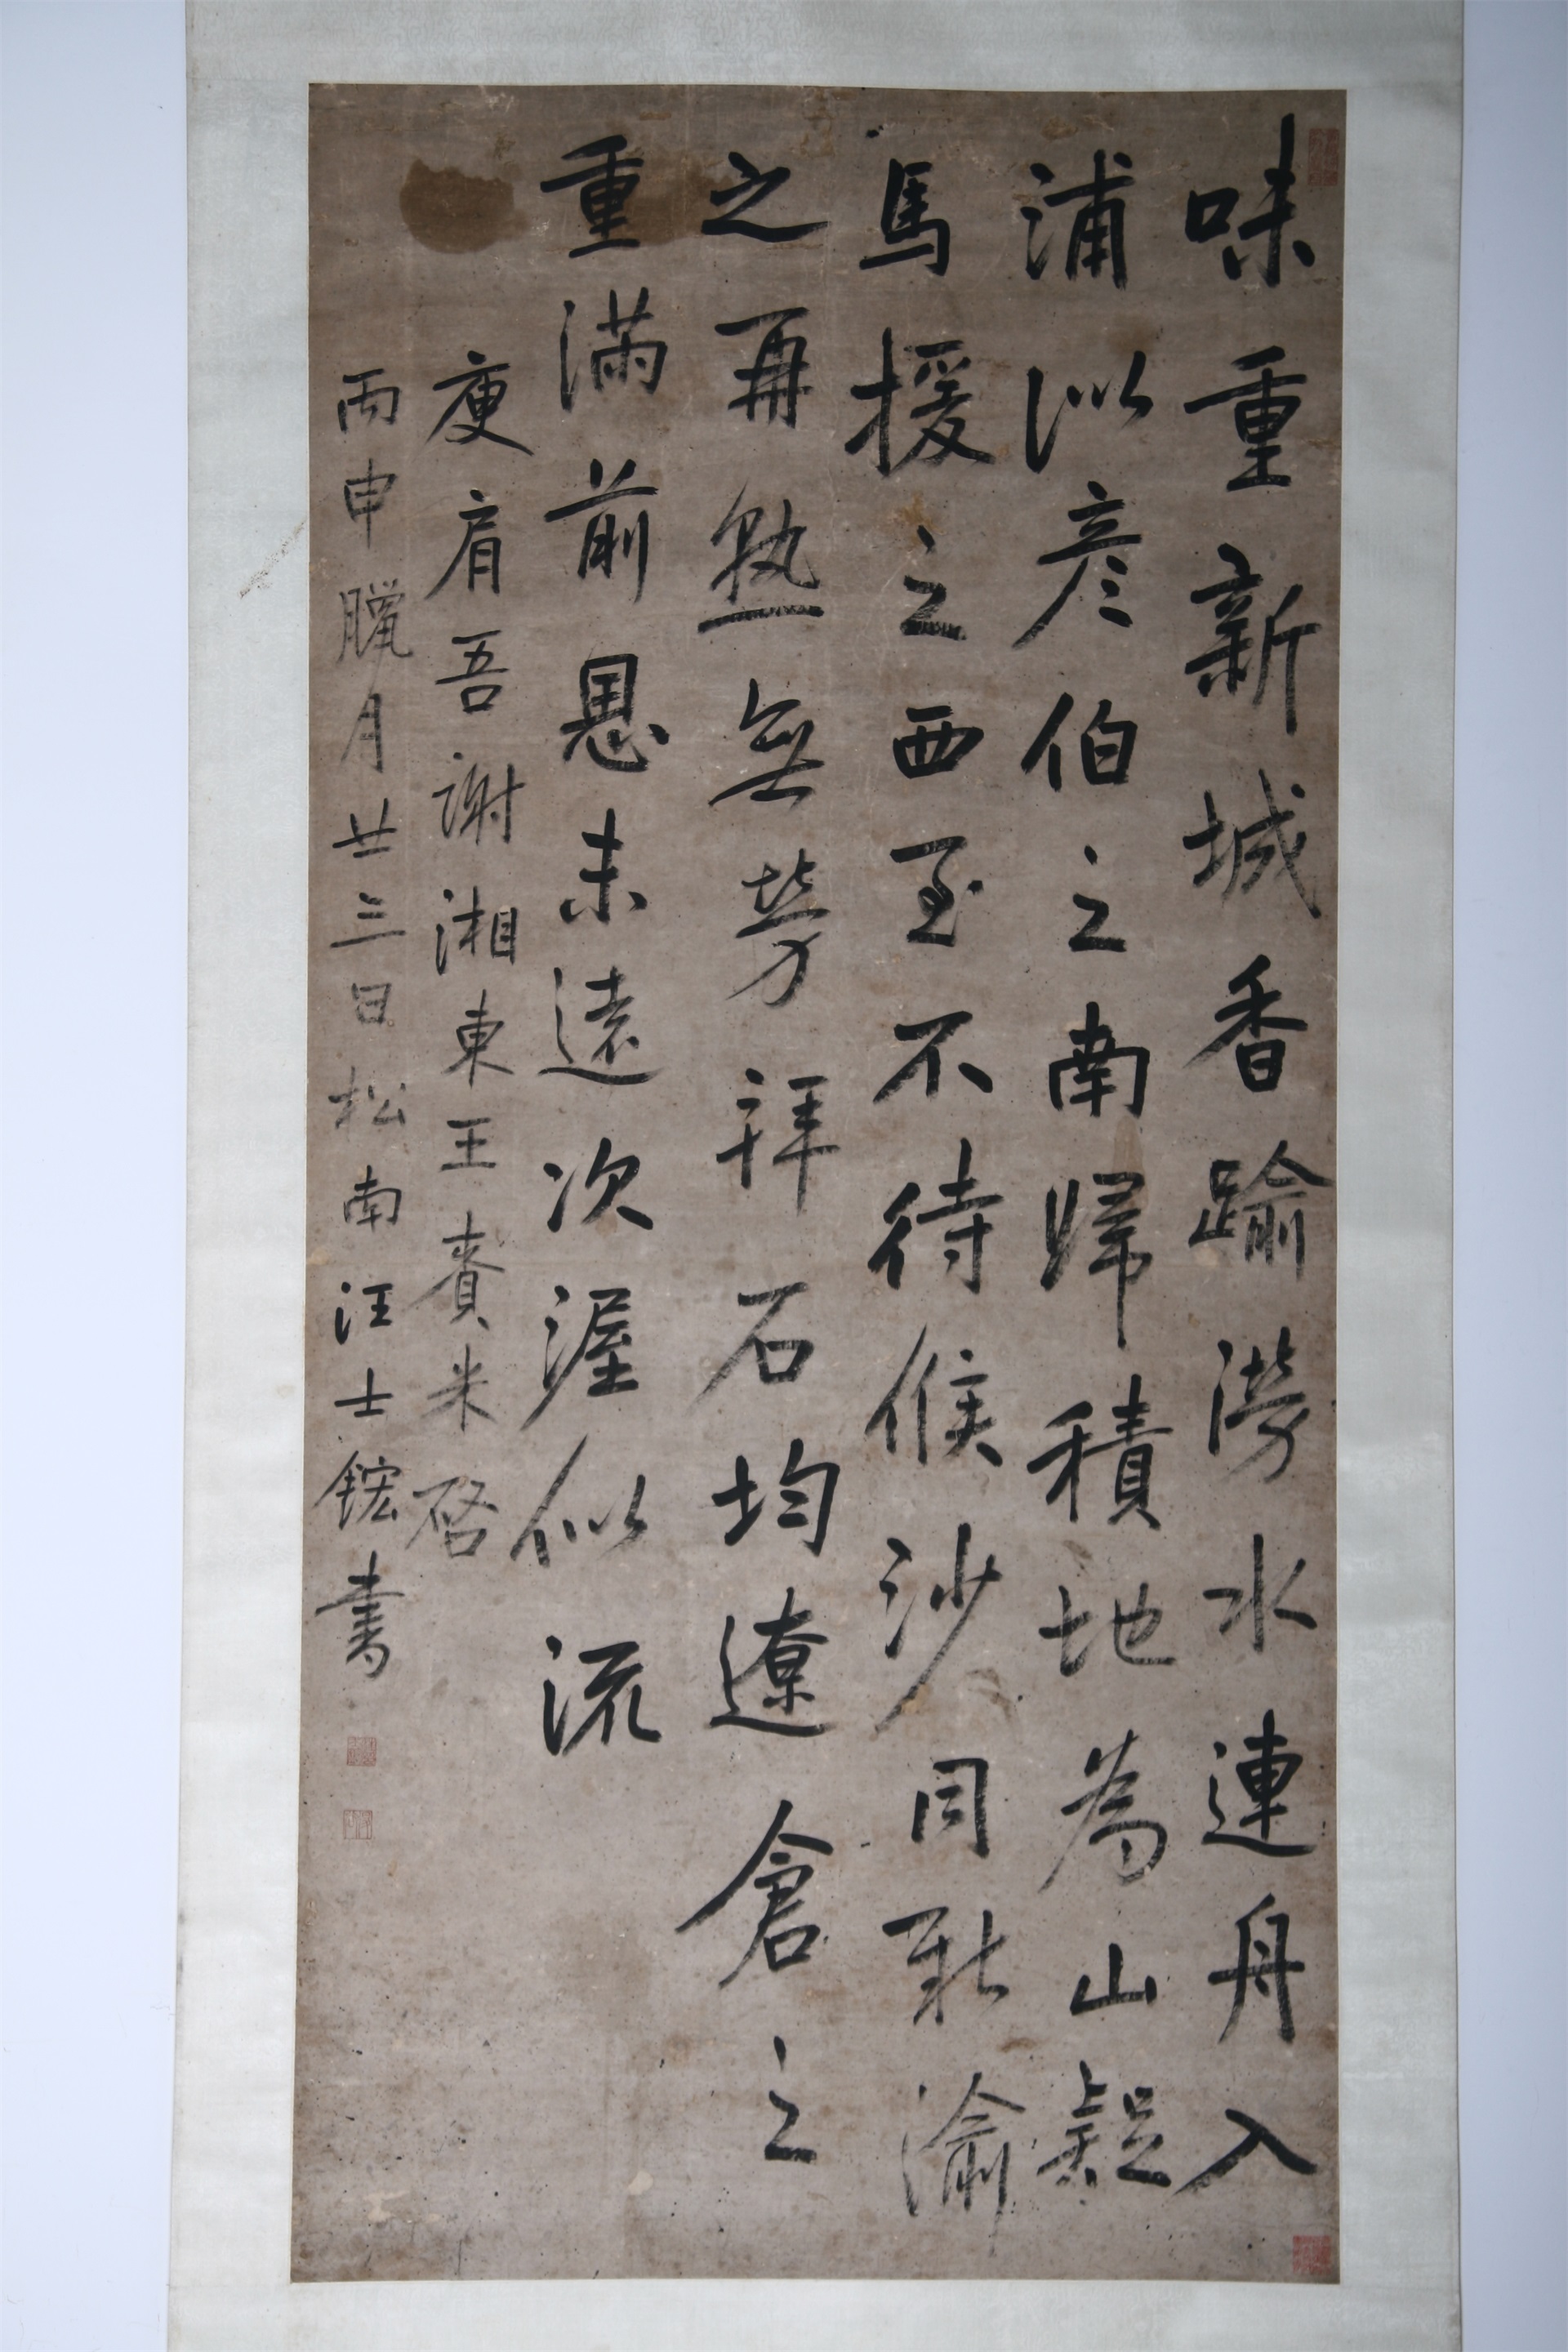 味重新城香踰澇水連舟入
浦似彥伯之南歸積地為山疑
馬援之西至不待候沙同耻渝
之再熟無勞拜石均遼倉之
重滿前恩未遠次渥似流
庾肩吾謝湘東王賚米启
丙申臘月廿三日松南汪士鋐書